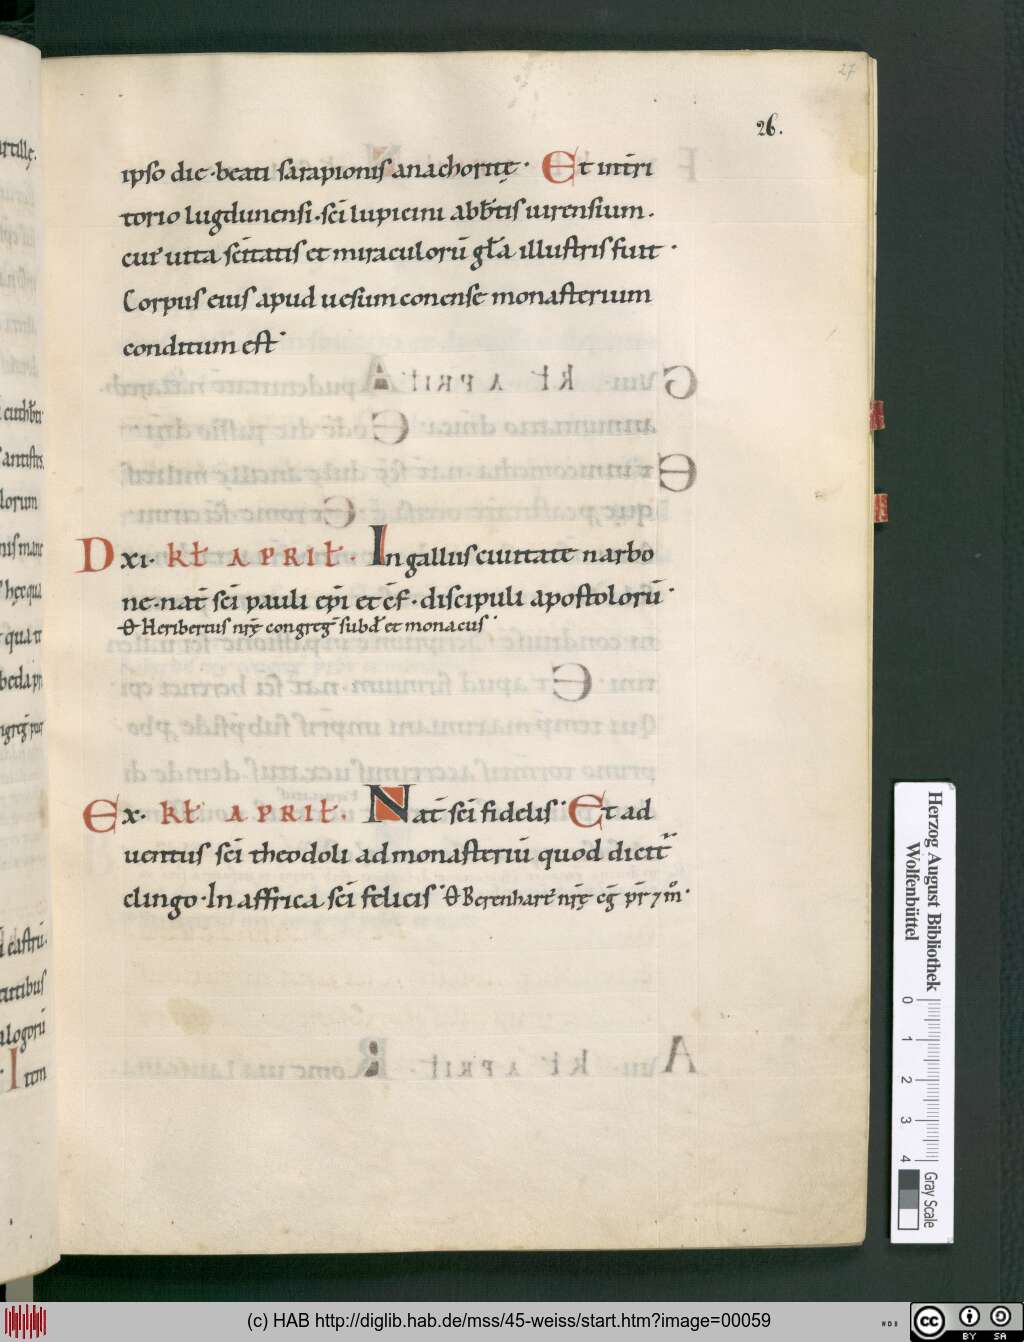 27
26.
ipso die · beati sarapionis anachoritę · Et in tr̄ri
torio lugdunensi · sc̄i lupicini abb̄tis iurensium.
cui᷒ uita sc̄itatis et miraculorū gl̄a illustris fuit ·
Corpus eius apud uesumconense monasterium
conditum est·
D xı· kł APRIŁ· In gallus ciuitate narbo
ne · nat̄ sc̄i pauli ep̄i et c̄f · discipuli apostolorū·
Ꝋ Heribertus nr̄ę congreg̅ subd̄ et monacus·
E x· kł APRIŁ. Nat̄ sc̄i fidelis· Et ad
uentus sc̄i theodoli ad monasteriū quod dicit᷒
elingo · In affrica sc̄i felicis· Ꝋ Berenhart᷒ nr̄ę cg̅ pr̄ ⁊ m̊·
Herzog August Bibliothek
Wolfenbüttel
0 1 2 3 4
Gray Scale
(c) HAB http://diglib.hab.de/mss/45-weiss/start.htm?image=00059
WDB
cc BY SA